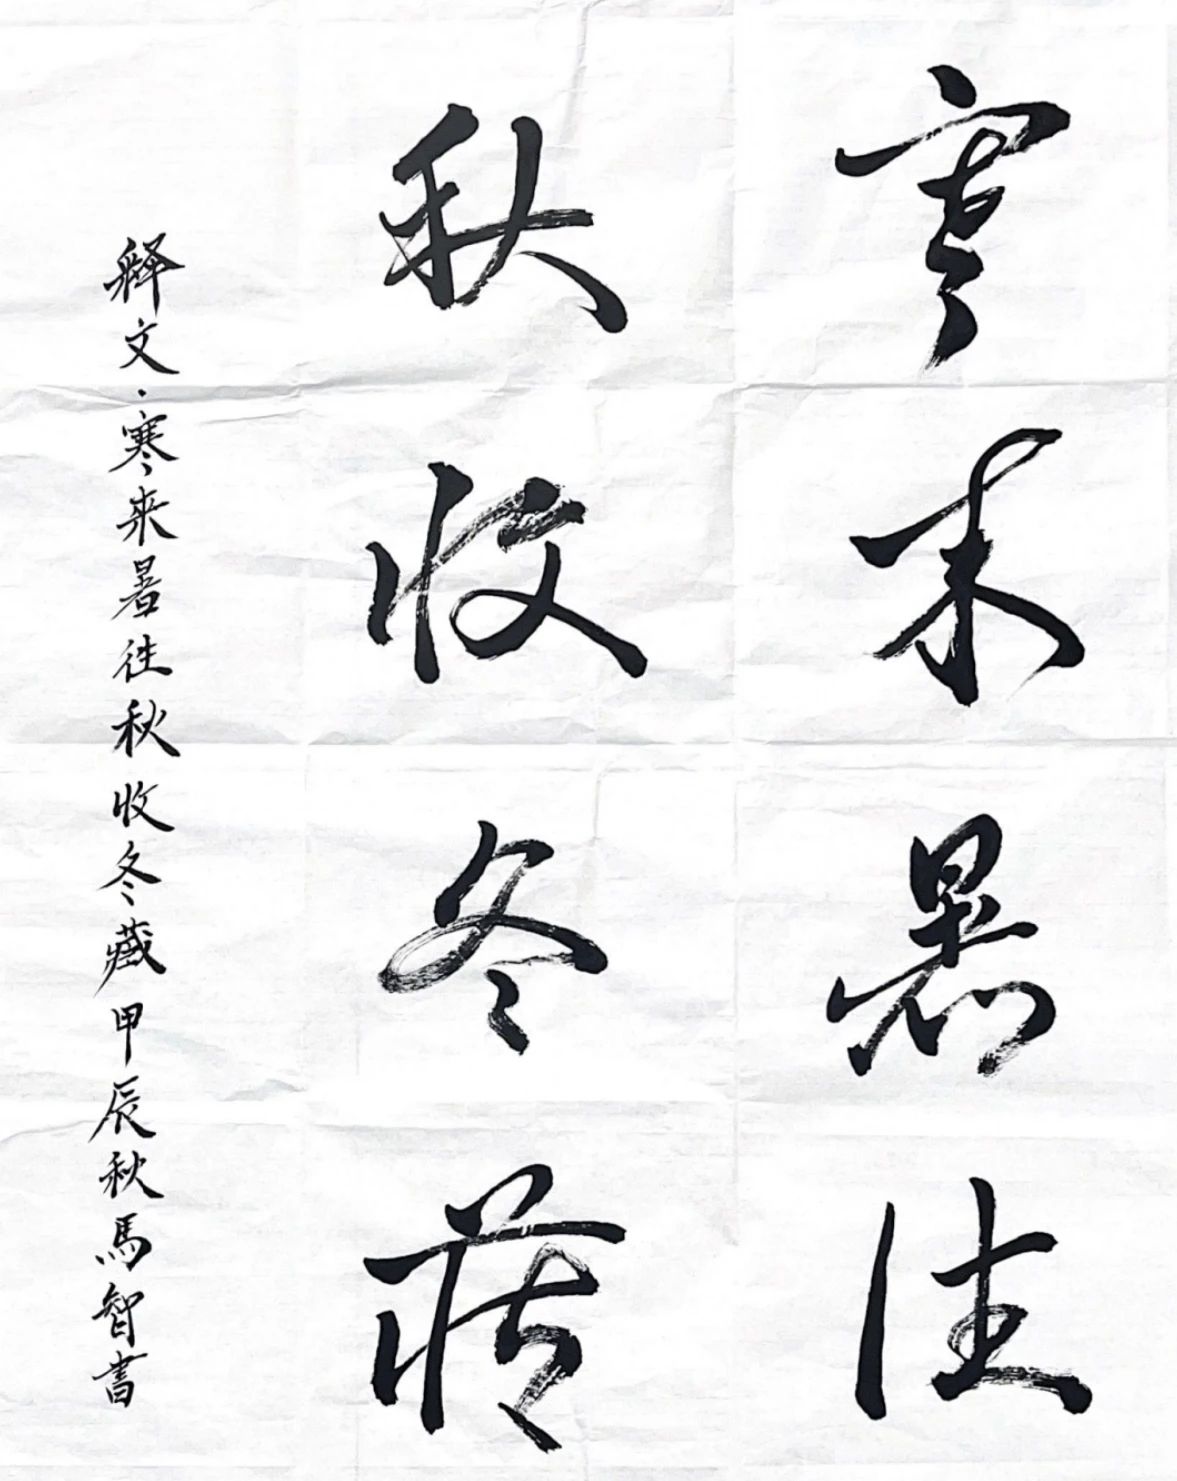 寒来暑往
秋收冬藏
释文·寒来暑往秋收冬藏甲辰秋馬智書